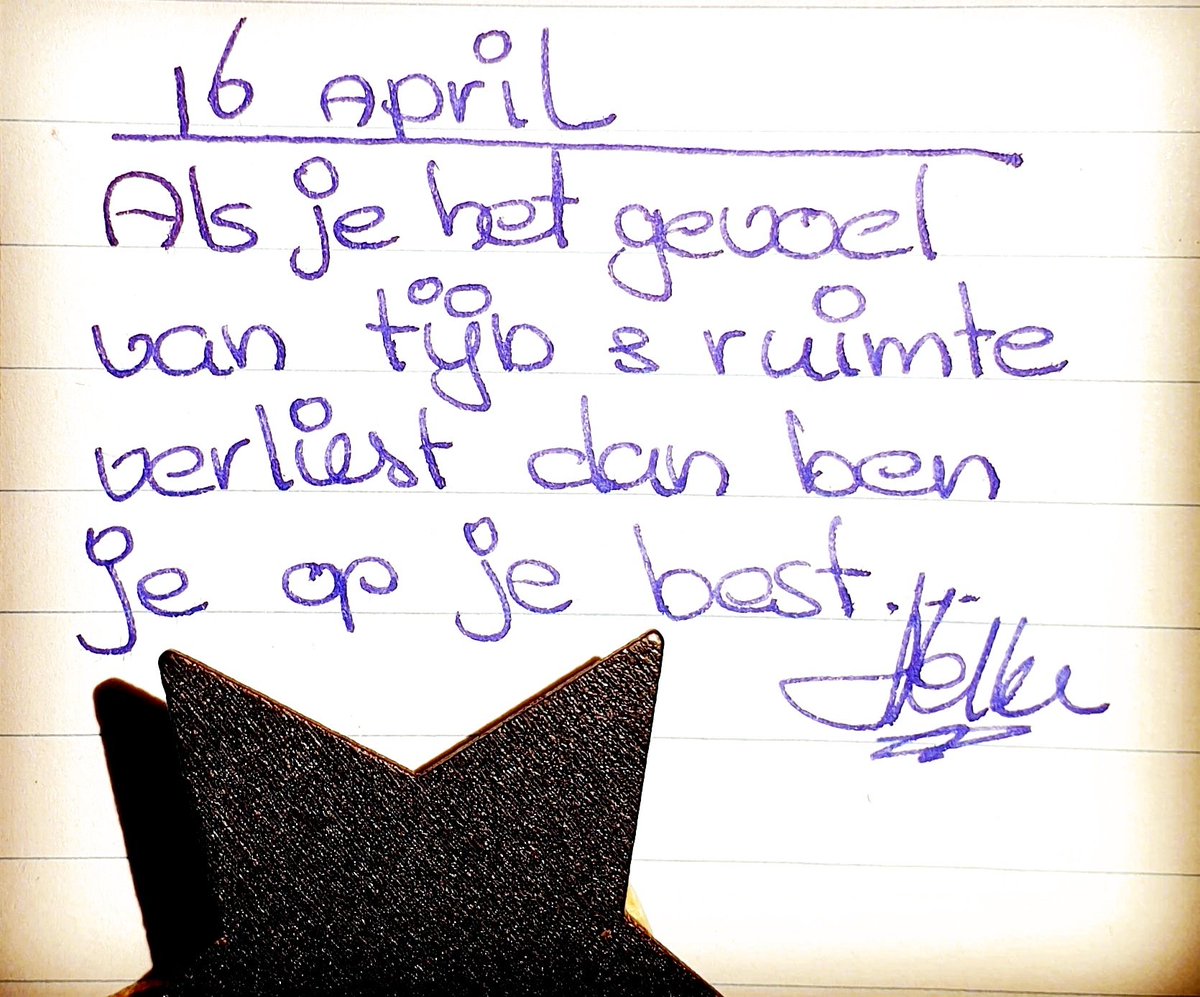 16 April
Als je het gevoel
van tijd & ruimte
verliest dan ben
je op je best.